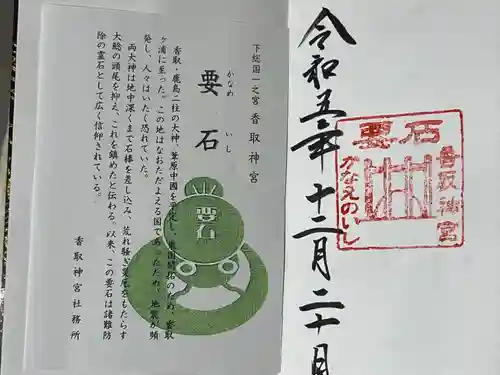 下総国一之宮 香取神宮
かなめ いし
要石
香取・鹿島二柱の大神、葦原中國を平定し、東国開拓のため、香取
ヶ浦に至った。この地はなおただよえる国であったため、地震が頻
発し、人々はいたく恐れていた。
両大神は地中深くまで石棒を差し込み、荒れ騒ぐ地震をもたらす
大鯰の頭尾を抑え、これを鎮めたと伝わる。以来、この要石は諸難防
除の霊石として広く信仰されている。
香取神宮社務所
要石
令和五年十二月二十日
要石
香取神宮
かなめのいし